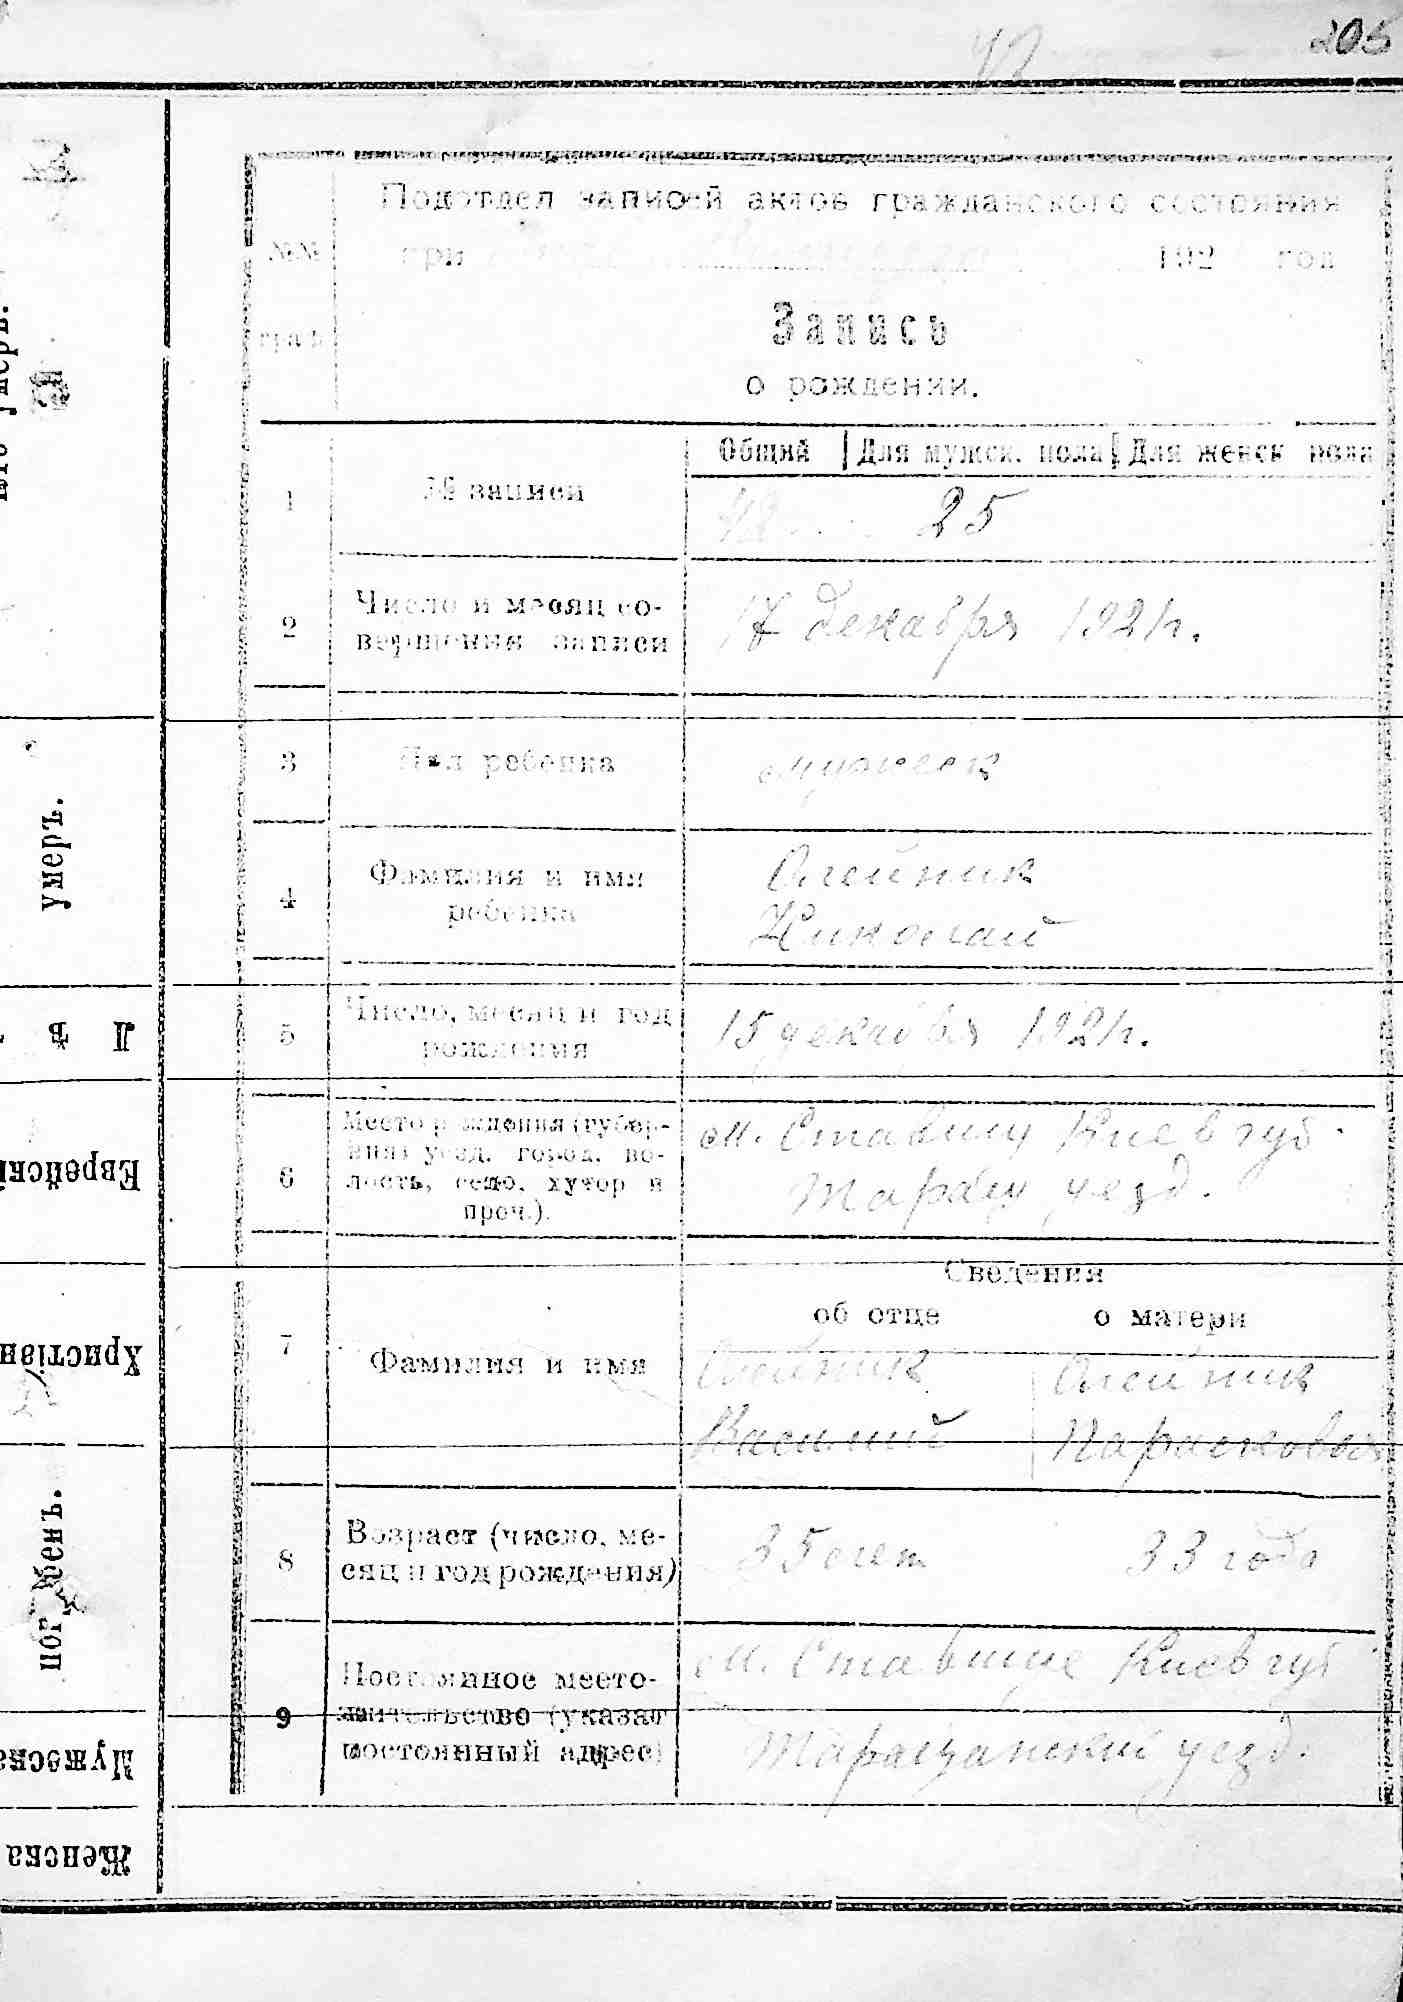 42
205
Подотдел записей актов гражданского состояния
№№ при 192 год
граф.
Запись
о рождении.
Общий Для мужск. пола Для женск пола
1 № записи 42 25
2 Число и месяц со-
вершения записи
17 декабря 1921 г.
3 Пол ребенка мужеск
4 Фамилия и имя
ребенка
Олейник
Николай
5 Число, месяц и год
рождения
15 декабря 1921 г.
6 Место рождения (губер-
ния, уезд, город, во-
лость, село, хутор и
проч.).
м. Ставищу Киев губ.
Таращ уезд.
Сведения
об отце о матери
7 Фамилия и имя
Олейник Олейник
Василий Парасковея
8 Возраст (число, ме-
сяц и год рождения)
35 лет 33 года
9 Постоянное место-
жительство (указат
постоянный адрес)
м. Ставище Киев губ
Таращанский уезд.
умеръ.
Л ѣ
Еврейскі
Христіан
Мужеска
Женска